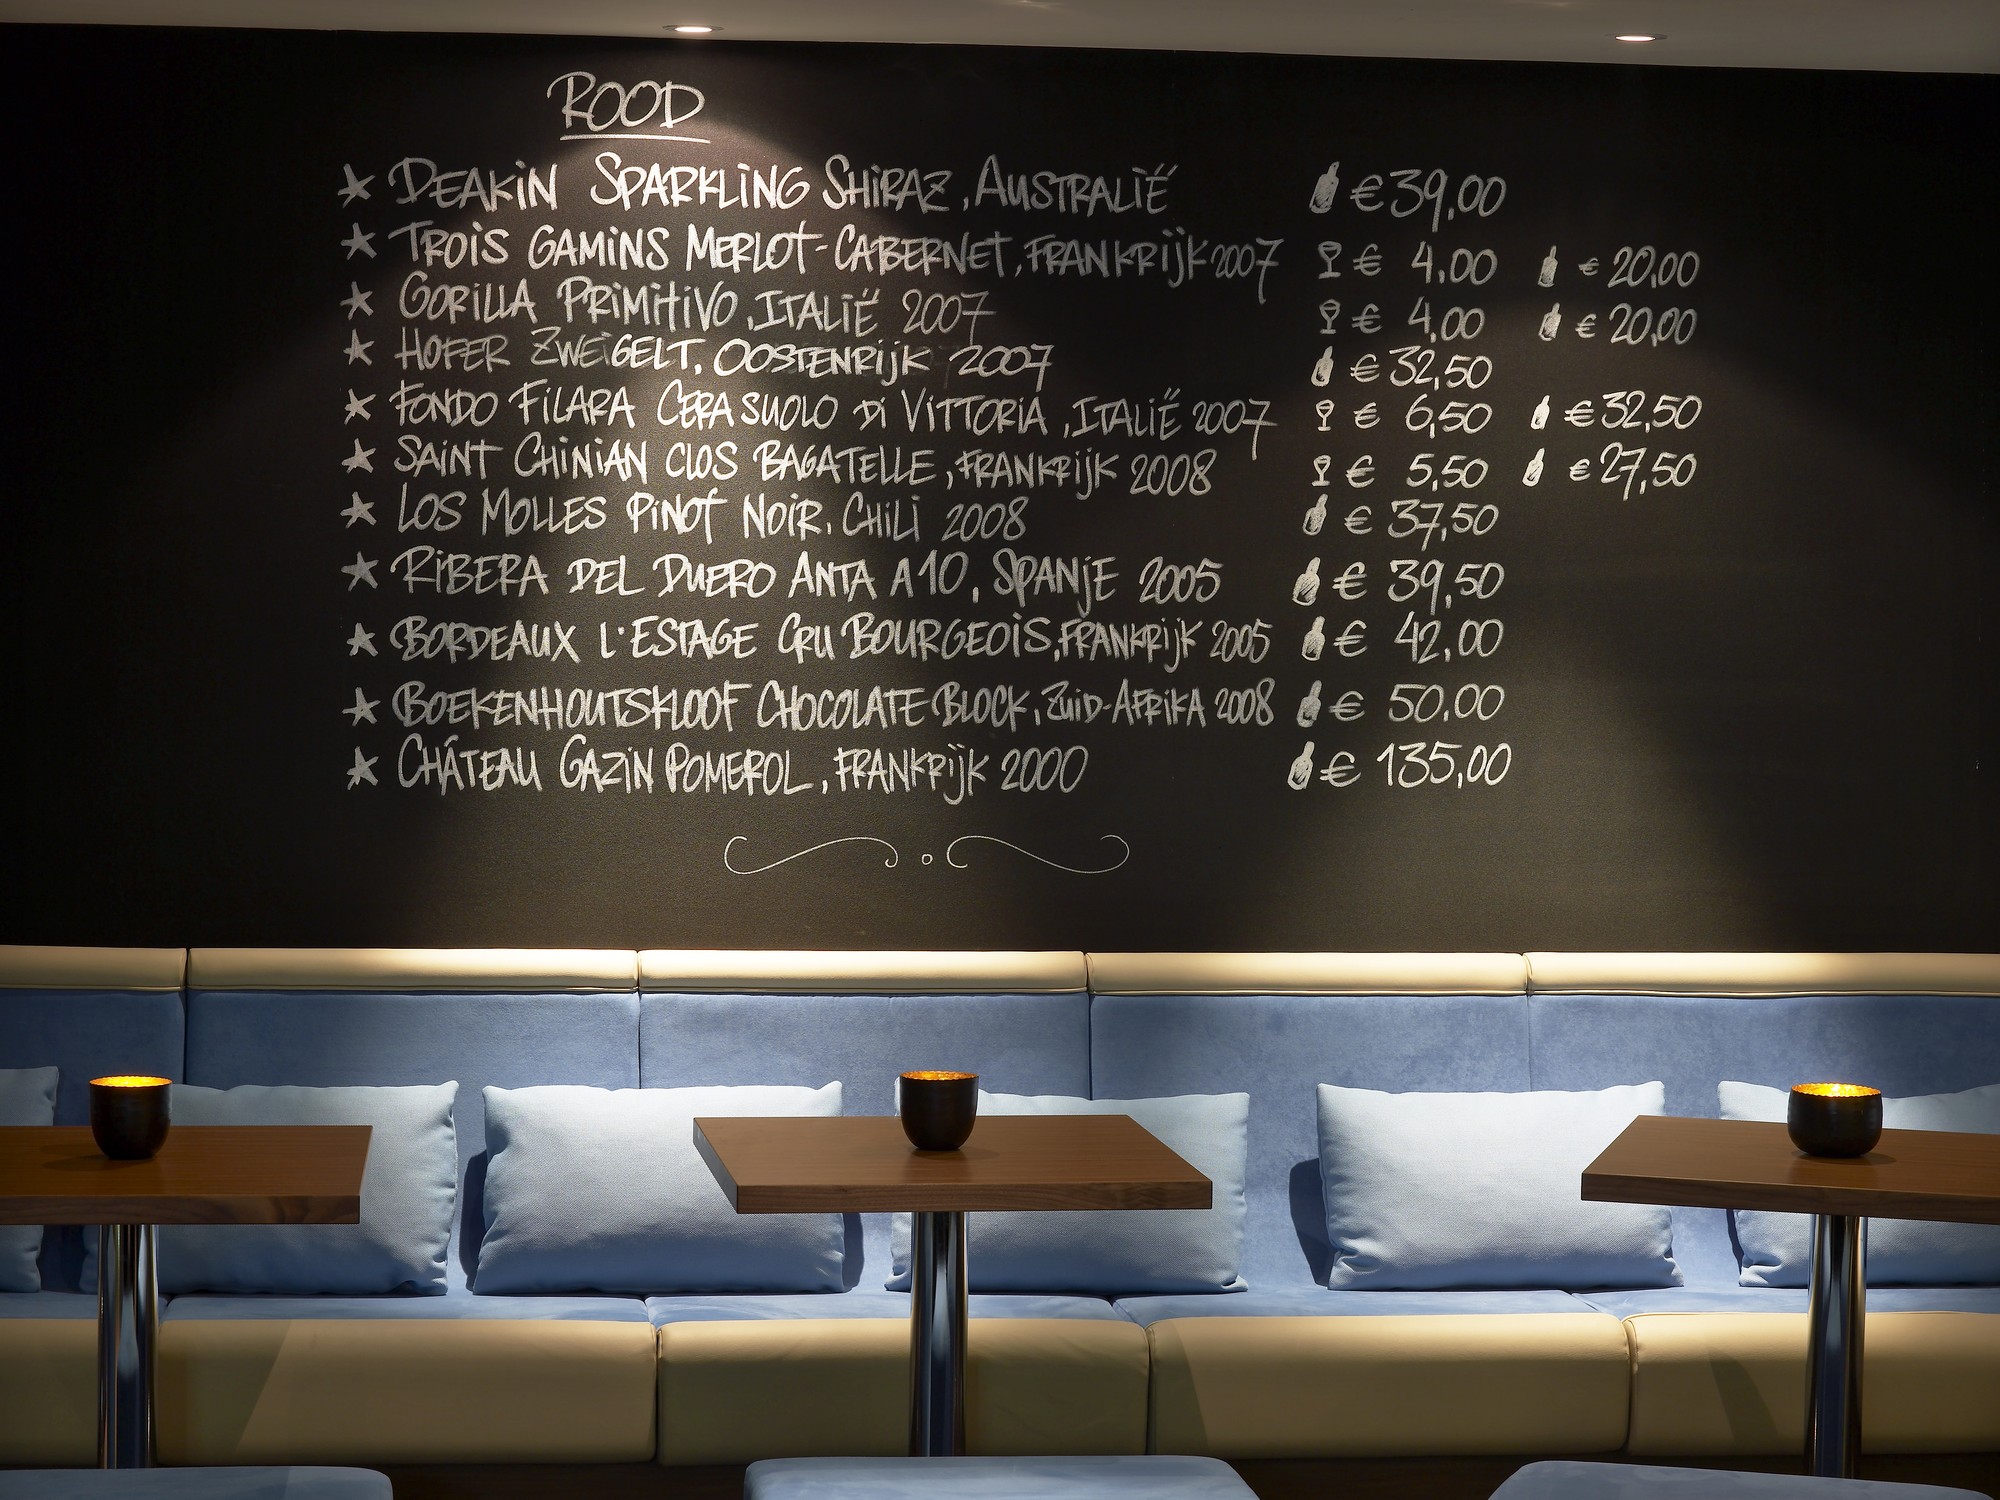 ROOD
DEAKIN SPARKLING SHIRAZ, AUSTRALIË € 39,00
TROIS GAMINS MERLOT-CABERNET, FRANKRIJK 2007 € 4,00 € 20,00
GORILLA PRIMITIVO, ITALIË 2007 € 4,00 € 20,00
HOFER ZWEIGELT, OOSTENRIJK 2007 € 32,50
FONDO FILARA CERASUOLO DI VITTORIA, ITALIË 2007 € 6,50 € 32,50
SAINT CHINIAN CLOS BAGATELLE, FRANKRIJK 2008 € 5,50 € 27,50
LOS MOLLES PINOT NOIR, CHILI 2008 € 37,50
RIBERA DEL DUERO ANTA A10, SPANJE 2005 € 39,50
BORDEAUX L'ESTAGE CRU BOURGEOIS, FRANKRIJK 2005 € 42,00
BOEKENHOUTSKLOOF CHOCOLATE BLOCK, ZUID-AFRIKA 2008 € 50,00
CHÁTEAU GAZIN POMEROL, FRANKRIJK 2000 € 135,00